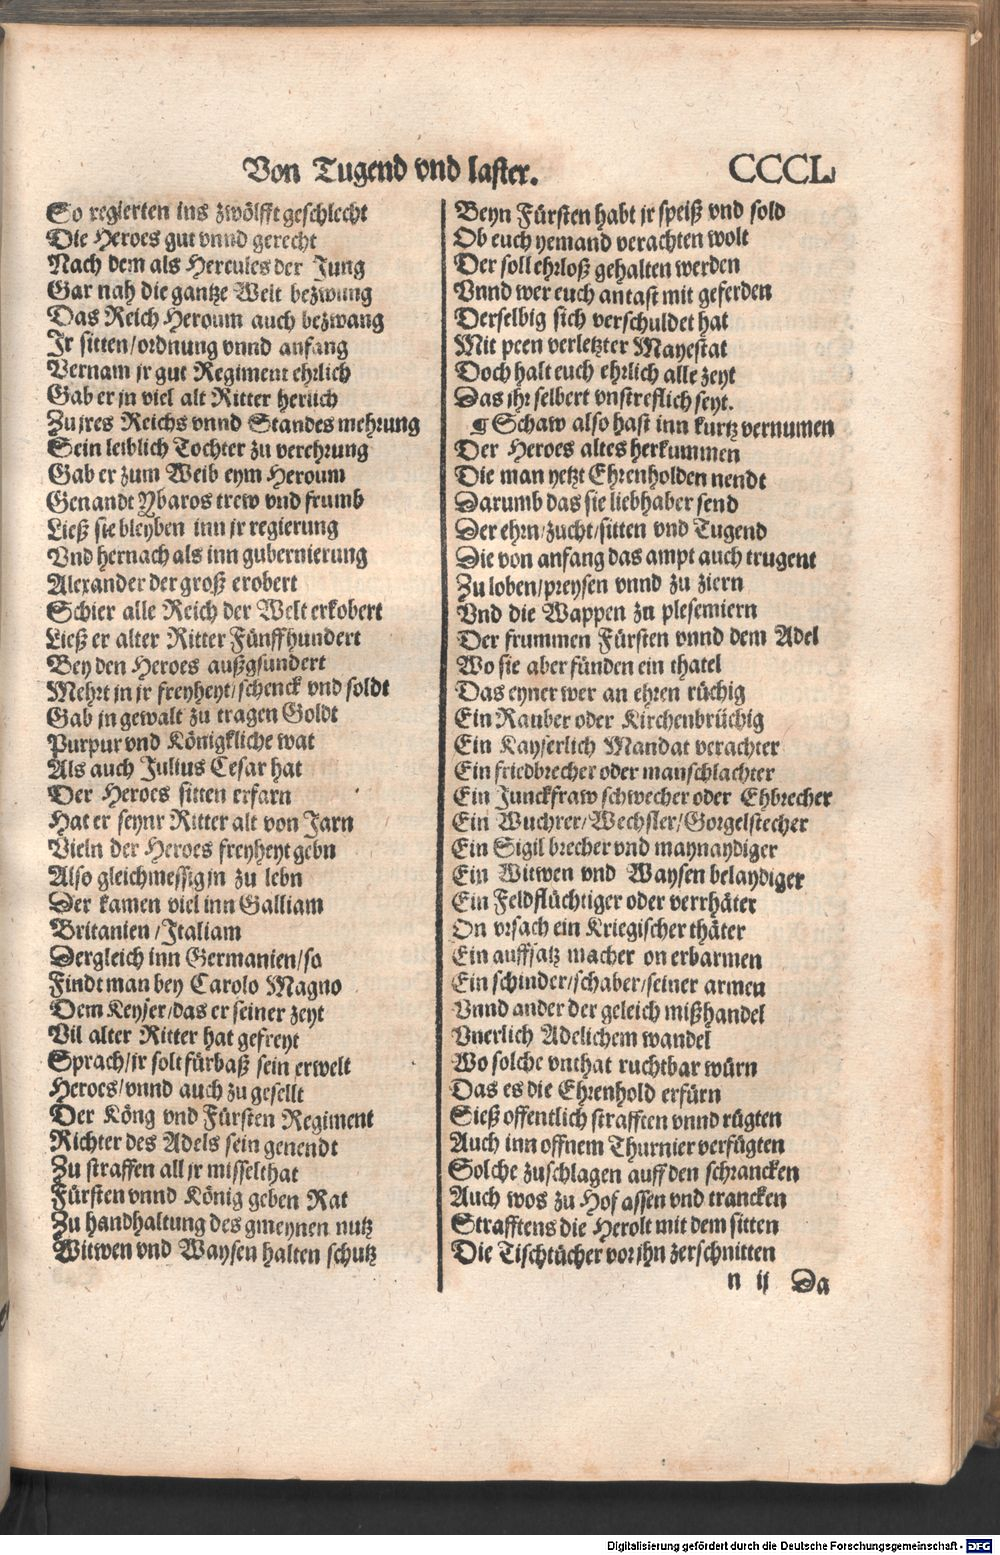 Von Tugend vnd laster.
CCCL
So regierten ins zwölfft geschlecht
Die Heroes gut vnnd gerecht
Nach dem als Hercules der Jung
Gar nah die gantze Welt bezwung
Das Reich Heroum auch bezwang
Jr sitten/ordnung vnnd anfang
Vernam jr gut Regiment ehrlich
Gab er jn viel alt Ritter herlich
Zu jres Reichs vnnd Standes mehrung
Sein leiblich Tochter zu verehrung
Gab er zum Weib eym Heroum
Genandt Ybaros trew vnd frumb
Ließ sie bleyben inn jr regierung
Vnd hernach als inn gubernierung
Alexander der groß erobert
Schier alle Reich der Welt erkobert
Ließ er alter Ritter Fünffhundert
Bey den Heroes außgsundert
Mehrt in jr freyheyt/schenck vnd soldt
Gab jn gewalt zu tragen Goldt
Purpur vnd Königkliche wat
Als auch Julius Cesar hat
Der Heroes sitten erfarn
Hat er seynr Ritter alt von Jarn
Vieln der Heroes freyheyt gebn
Also gleichmessig jn zu lebn
Der kamen viel inn Galliam
Britanien/Italiam
Dergleich inn Germanien/so
Findt man bey Carolo Magno
Dem Keyser/das er seiner zeyt
Vil alter Ritter hat gefreyt
Sprach/jr solt fürbaß sein erwelt
Heroes/vnnd auch zu gesellt
Der Köng vnd Fürsten Regiment
Richter des Adels sein genendt
Zu straffen all jr misselthat
Fürsten vnnd König geben Rat
Zu handhaltung des gmeynen nutz
Witwen vnd Waysen halten schutz
Beyn Fürsten habt jr speiß vnd sold
Ob euch yemand verachten wolt
Der soll ehrloß gehalten werden
Vnnd wer euch antast mit geferden
Derselbig sich verschuldet hat
Mit peen verletzter Mayestat
Doch halt euch ehrlich alle zeyt
Das jhr selbert vnstreflich seyt.
¶ Schaw also hast inn kurtz vernumen
Der Heroes altes herkummen
Die man yetzt Ehrenholden nendt
Darumb das sie liebhaber send
Der ehrn/zucht/sitten vnd Tugend
Die von anfang das ampt auch trugent
Zu loben/preysen vnnd zu ziern
Vnd die Wappen zu plesemiern
Der frummen Fürsten vnnd dem Adel
Wo sie aber fünden ein thatel
Das eyner wer an ehren rüchig
Ein Rauber oder Kirchenbrüchig
Ein Kayserlich Mandat verachter
Ein friedbrecher oder manschlachter
Ein Junckfraw schwecher oder Ehbrecher
Ein Wuchrer/Wechsler/Gorgelstecher
Ein Sigil brecher vnd maynaydiger
Ein Witwen vnd Waysen belaydiger
Ein Feldflüchtiger oder verrhäter
On vrsach ein Kriegischer thäter
Ein auffsatz macher on erbarmen
Ein schinder/schaber/seiner armen
Vnnd ander der geleich mißhandel
Vnerlich Adelichem wandel
Wo solche vnthat ruchtbar würn
Das es die Ehrenhold erfürn
Sieß offentlich strafften vnnd rügten
Auch inn offnem Thurnier verfügten
Solche zuschlagen auff den schrancken
Auch wos zu Hof assen vnd trancken
Strafftens die Herolt mit dem sitten
Die Tischtücher vor jhn zerschnitten
n ij Da
Digitalisierung gefördert durch die Deutsche Forschungsgemeinschaft - DFG